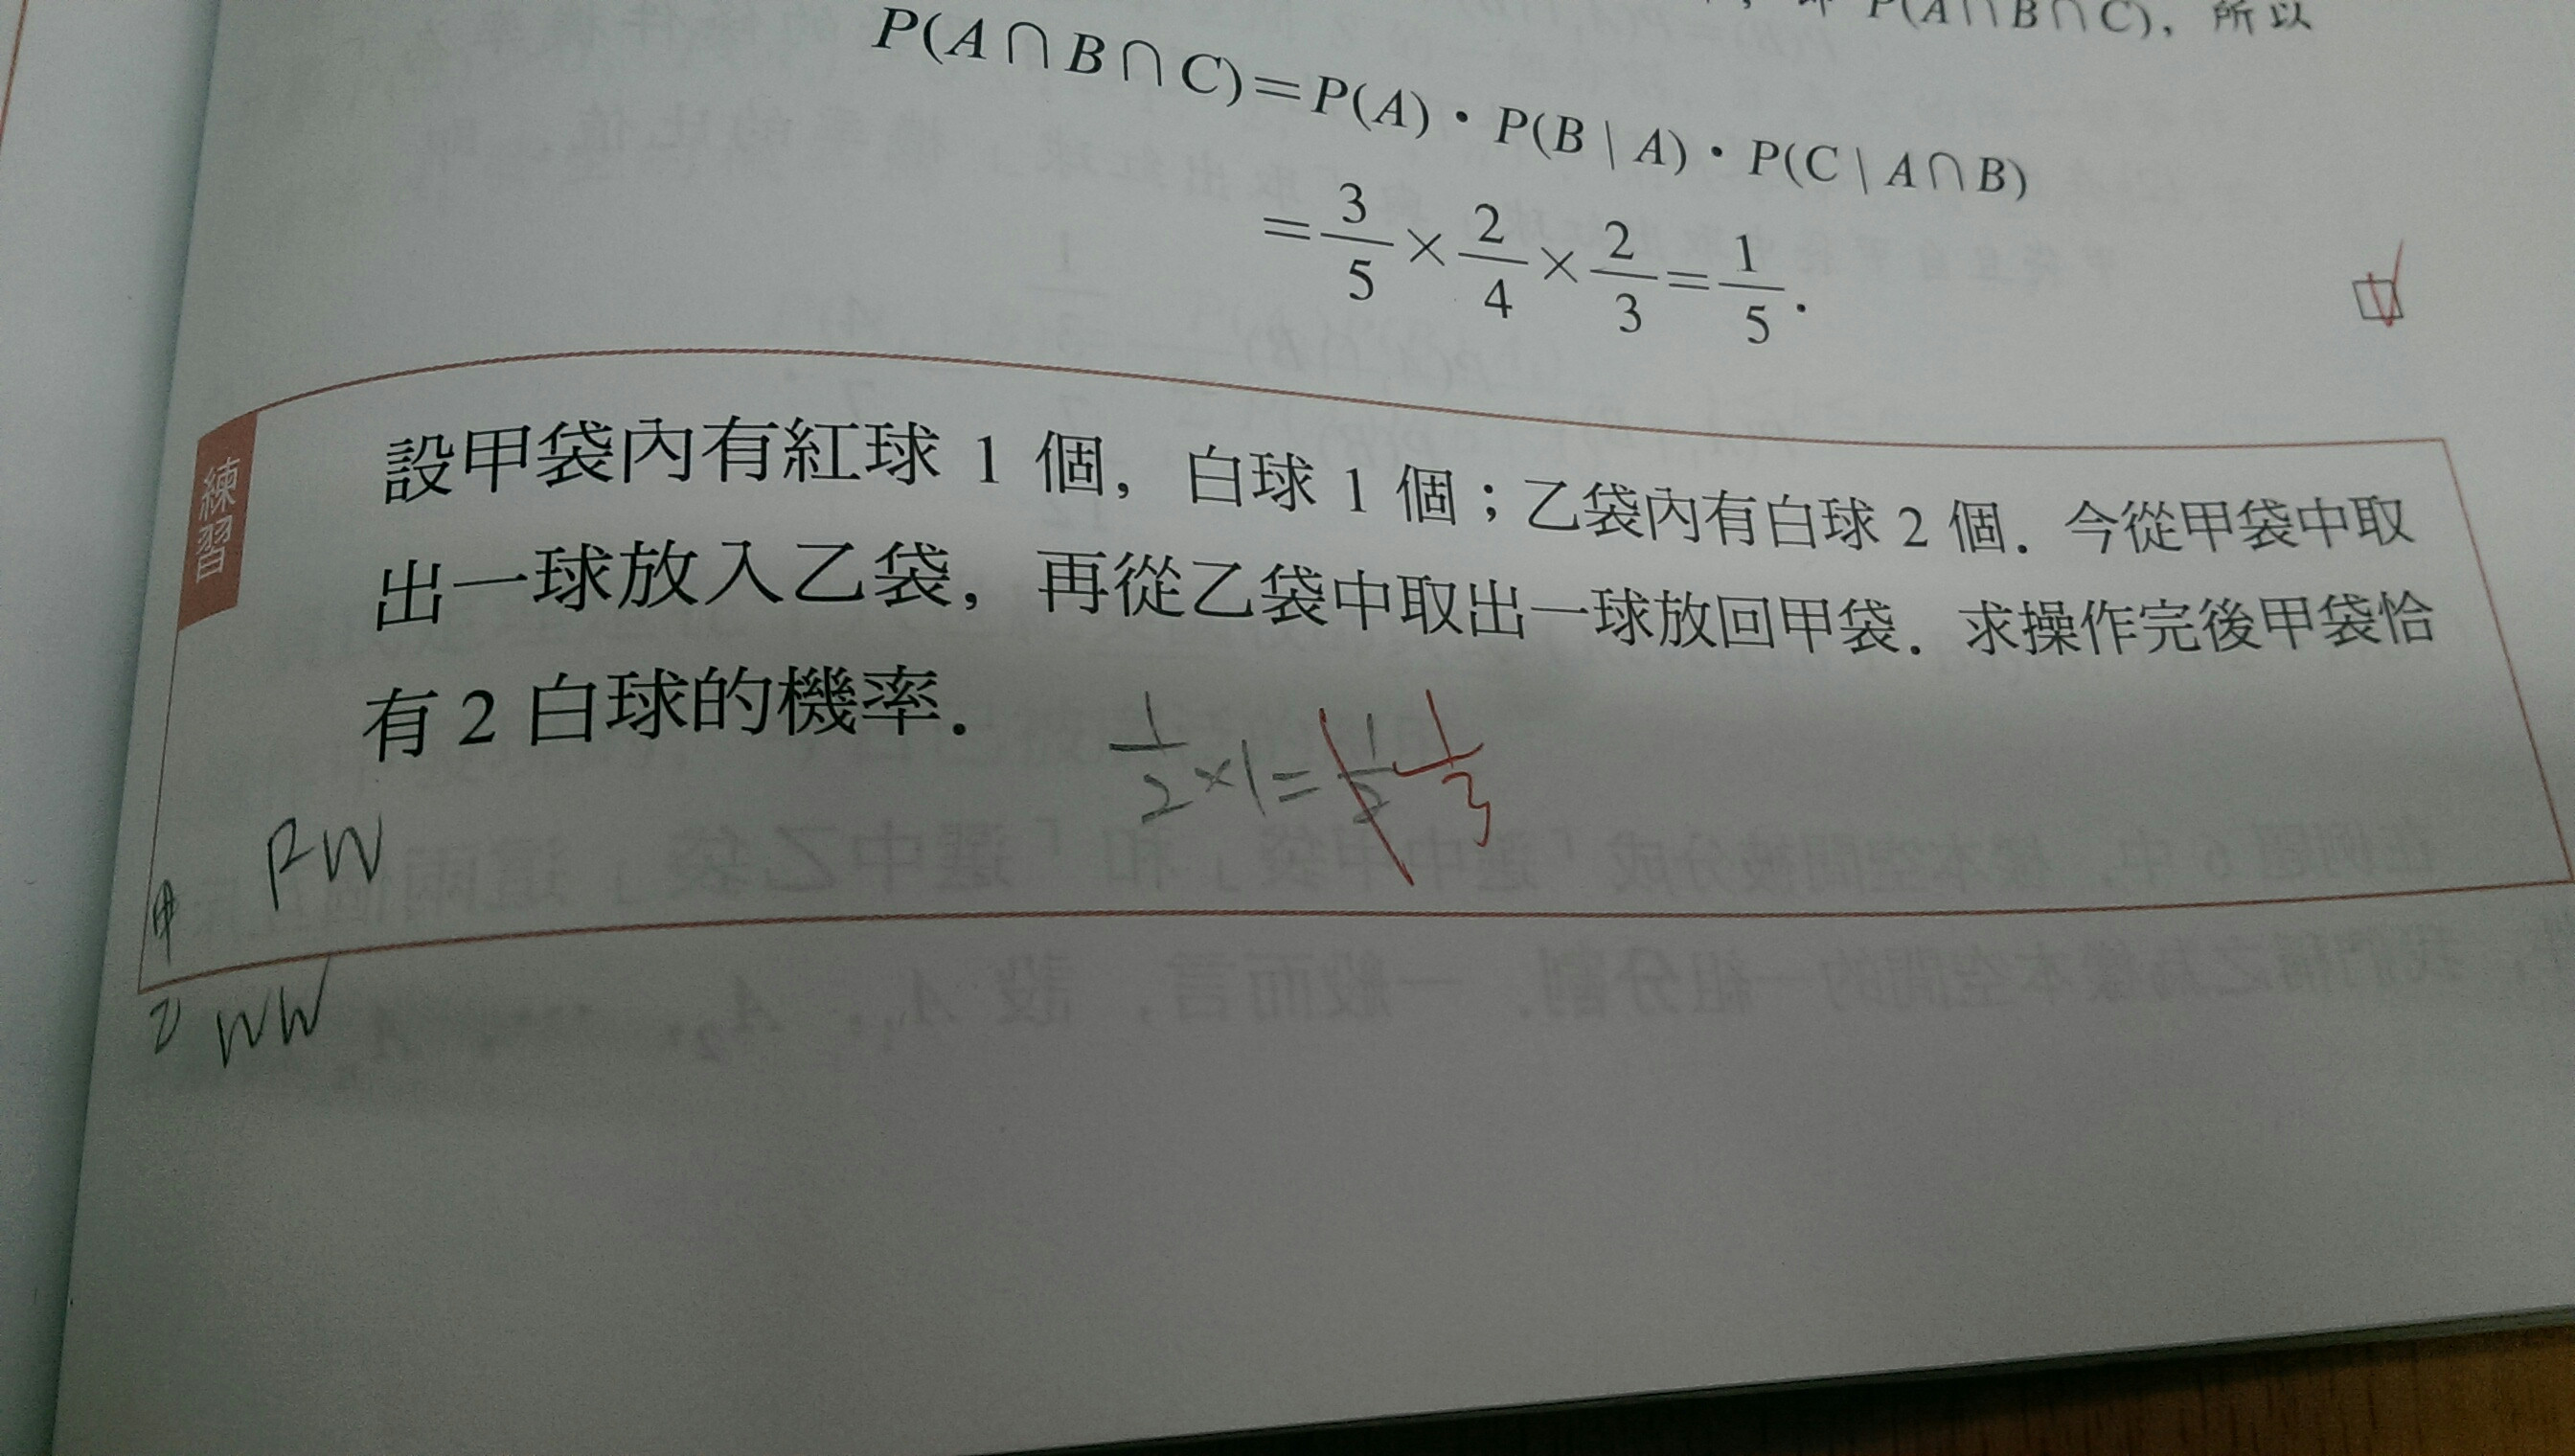 P(A∩B∩C), 所以
P(A∩B∩C)=P(A)·P(B|A)·P(C|A∩B)
=3/5×2/4×2/3=1/5.
練習
設甲袋內有紅球 1 個, 白球 1 個；乙袋內有白球 2 個. 今從甲袋中取
出一球放入乙袋, 再從乙袋中取出一球放回甲袋. 求操作完後甲袋恰
有 2 白球的機率.
1/2×1=1/2 1/3
甲 RW
乙 WW